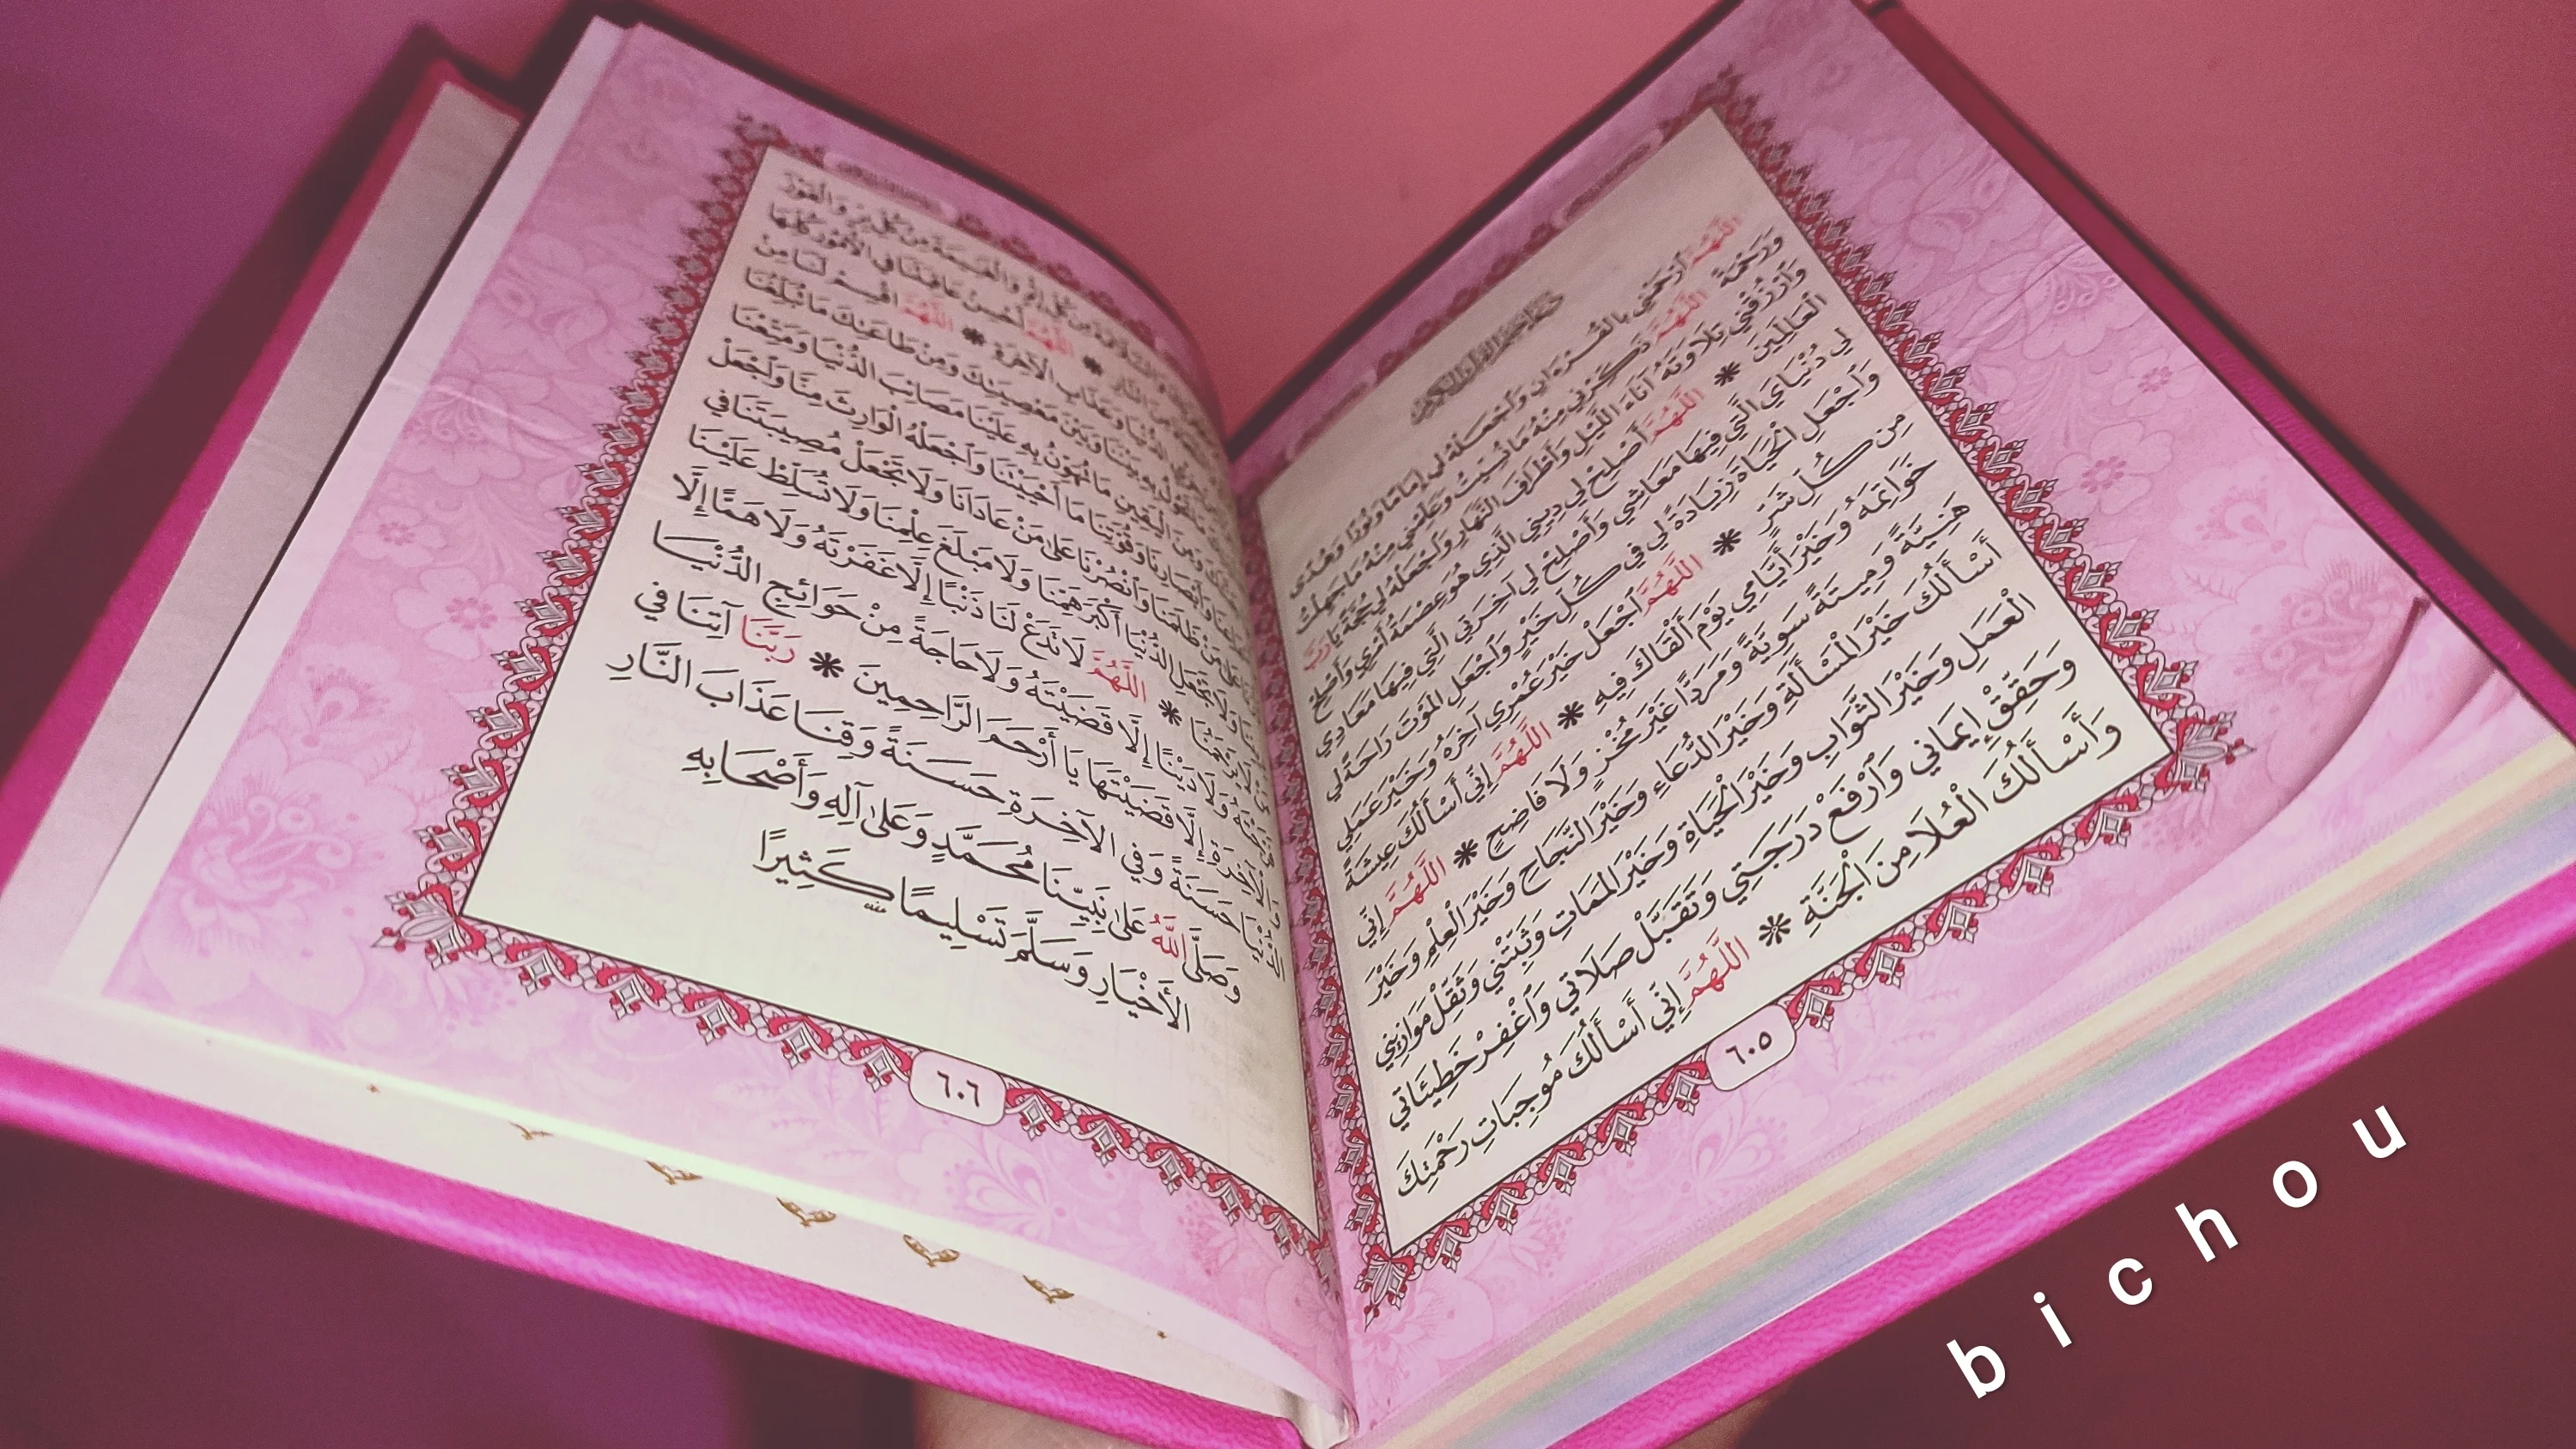 اللَّهُمَّ ارْحَمْنِي بِالْقُرْءَانِ وَاجْعَلْهُ لِي إِمَامًا وَنُورًا وَهُدًى
وَرَحْمَةً اللَّهُمَّ ذَكِّرْنِي مِنْهُ مَا نَسِيتُ وَعَلِّمْنِي مِنْهُ مَا جَهِلْتُ
وَارْزُقْنِي تِلَاوَتَهُ آنَاءَ اللَّيْلِ وَأَطْرَافَ النَّهَارِ وَاجْعَلْهُ لِي حُجَّةً يَا رَبَّ
الْعَالَمِينَ * اللَّهُمَّ أَصْلِحْ لِي دِينِي الَّذِي هُوَ عِصْمَةُ أَمْرِي وَأَصْلِحْ
لِي دُنْيَايَ الَّتِي فِيهَا مَعَاشِي وَأَصْلِحْ لِي آخِرَتِي الَّتِي فِيهَا مَعَادِي
وَاجْعَلِ الْحَيَاةَ زِيَادَةً لِي فِي كُلِّ خَيْرٍ وَاجْعَلِ الْمَوْتَ رَاحَةً لِي
مِن كُلِّ شَرٍّ * اللَّهُمَّ اجْعَلْ خَيْرَ عُمْرِي آخِرَهُ وَخَيْرَ عَمَلِي
خَوَاتِمَهُ وَخَيْرَ أَيَّامِي يَوْمَ أَلْقَاكَ فِيهِ * اللَّهُمَّ إِنِّي أَسْأَلُكَ عِيشَةً
هَنِيَّةً وَمِيتَةً سَوِيَّةً وَمَرَدًّا غَيْرَ مُخْزٍ وَلَا فَاضِحٍ * اللَّهُمَّ إِنِّي
أَسْأَلُكَ خَيْرَ الْمَسْأَلَةِ وَخَيْرَ الدُّعَاءِ وَخَيْرَ النَّجَاحِ وَخَيْرَ الْعِلْمِ وَخَيْرَ
الْعَمَلِ وَخَيْرَ الثَّوَابِ وَخَيْرَ الْحَيَاةِ وَخَيْرَ الْمَمَاتِ وَثَبِّتْنِي وَثَقِّلْ مَوَازِينِي
وَحَقِّقْ إِيمَانِي وَارْفَعْ دَرَجَتِي وَتَقَبَّلْ صَلَاتِي وَاغْفِرْ خَطِيئَاتِي
وَأَسْأَلُكَ الْعُلَا مِنَ الْجَنَّةِ * اللَّهُمَّ إِنِّي أَسْأَلُكَ مُوجِبَاتِ رَحْمَتِكَ
٦٠٥
مِن كُلِّ بِرٍّ وَالْفَوْزَ
اللَّهُمَّ أَحْسِنْ عَاقِبَتَنَا فِي الْأُمُورِ كُلِّهَا
الدُّنْيَا وَعَذَابِ الْآخِرَةِ * اللَّهُمَّ اقْسِمْ لَنَا مِنْ
بَيْنَنَا وَبَيْنَ مَعْصِيَتِكَ وَمِنْ طَاعَتِكَ مَا تُبَلِّغُنَا
الْيَقِينِ مَا تُهَوِّنُ بِهِ عَلَيْنَا مَصَائِبَ الدُّنْيَا وَمَتِّعْنَا
وَقُوَّتِنَا مَا أَحْيَيْتَنَا وَاجْعَلْهُ الْوَارِثَ مِنَّا وَاجْعَلْ
وَانْصُرْنَا عَلَى مَنْ عَادَانَا وَلَا تَجْعَلْ مُصِيبَتَنَا فِي
الدُّنْيَا أَكْبَرَ هَمِّنَا وَلَا مَبْلَغَ عِلْمِنَا وَلَا تُسَلِّطْ عَلَيْنَا
* اللَّهُمَّ لَا تَدَعْ لَنَا ذَنْبًا إِلَّا غَفَرْتَهُ وَلَا هَمًّا إِلَّا
إِلَّا قَضَيْتَهُ وَلَا حَاجَةً مِنْ حَوَائِجِ الدُّنْيَا
إِلَّا قَضَيْتَهَا يَا أَرْحَمَ الرَّاحِمِينَ * رَبَّنَا آتِنَا فِي
حَسَنَةً وَفِي الْآخِرَةِ حَسَنَةً وَقِنَا عَذَابَ النَّارِ
وَصَلَّى اللَّهُ عَلَى نَبِيِّنَا مُحَمَّدٍ وَعَلَى آلِهِ وَأَصْحَابِهِ
الْأَخْيَارِ وَسَلَّمَ تَسْلِيمًا كَثِيرًا
٦٠٦
bichou